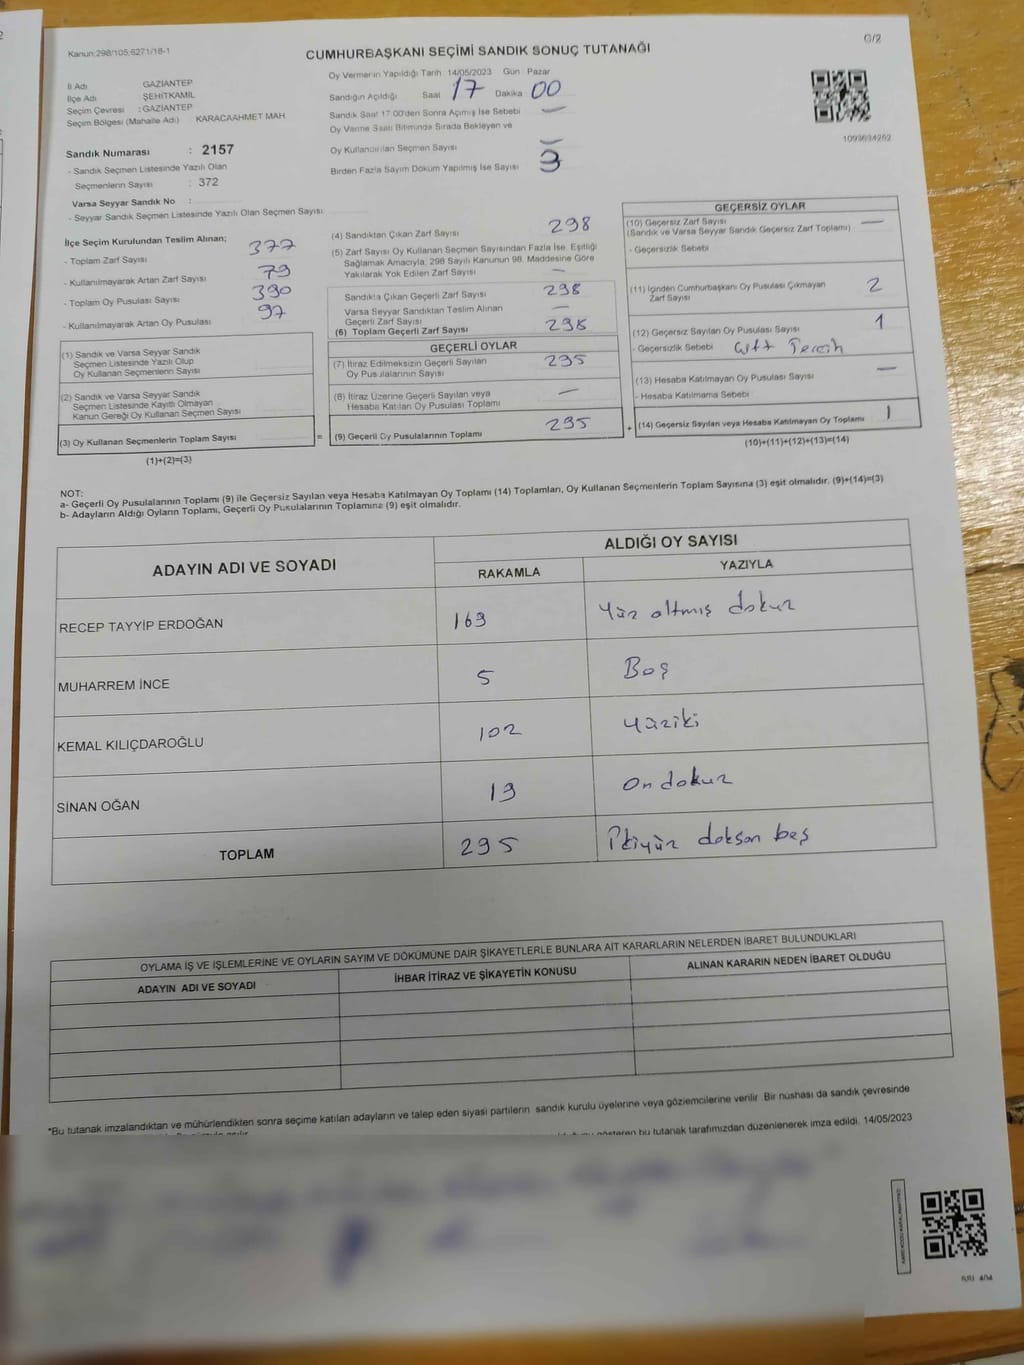 G/2
Kanun:298/105;6271/18-1
CUMHURBAŞKANI SEÇİMİ SANDIK SONUÇ TUTANAĞI
İl Adı GAZİANTEP
İlçe Adı ŞEHİTKAMİL
Seçim Çevresi : GAZİANTEP
Seçim Bölgesi (Mahalle Adı) KARACAAHMET MAH.
Sandık Numarası : 2157
- Sandık Seçmen Listesinde Yazılı Olan
Seçmenlerin Sayısı : 372
Varsa Seyyar Sandık No :
- Seyyar Sandık Seçmen Listesinde Yazılı Olan Seçmen Sayısı
Oy Vermenin Yapıldığı Tarih: 14/05/2023 Gün: Pazar
Sandığın Açıldığı Saat 17 Dakika 00
Sandık Saat 17:00'den Sonra Açılmış İse Sebebi —
Oy Verme Saati Bitiminde Sırada Bekleyen ve
Oy Kullandırılan Seçmen Sayısı —
Birden Fazla Sayım Döküm Yapılmış İse Sayısı 3
1093634252
İlçe Seçim Kurulundan Teslim Alınan;
- Toplam Zarf Sayısı 377
- Kullanılmayarak Artan Zarf Sayısı 79
- Toplam Oy Pusulası Sayısı 390
- Kullanılmayarak Artan Oy Pusulası 97
(1) Sandık ve Varsa Seyyar Sandık
Seçmen Listesinde Yazılı Olup
Oy Kullanan Seçmenlerin Sayısı
(2) Sandık ve Varsa Seyyar Sandık
Seçmen Listesinde Kayıtlı Olmayan
Kanun Gereği Oy Kullanan Seçmen Sayısı
(3) Oy Kullanan Seçmenlerin Toplam Sayısı
(1)+(2)=(3)
(4) Sandıktan Çıkan Zarf Sayısı 298
(5) Zarf Sayısı Oy Kullanan Seçmen Sayısından Fazla İse, Eşitliği
Sağlamak Amacıyla, 298 Sayılı Kanunun 98. Maddesine Göre
Yakılarak Yok Edilen Zarf Sayısı —
Sandıkta Çıkan Geçerli Zarf Sayısı 298
Varsa Seyyar Sandıktan Teslim Alınan
Geçerli Zarf Sayısı —
(6) Toplam Geçerli Zarf Sayısı 298
GEÇERLİ OYLAR
(7) İtiraz Edilmeksizin Geçerli Sayılan
Oy Pusulalarının Sayısı 295
(8) İtiraz Üzerine Geçerli Sayılan veya
Hesaba Katılan Oy Pusulası Toplamı —
= (9) Geçerli Oy Pusulalarının Toplamı 295
GEÇERSİZ OYLAR
(10) Geçersiz Zarf Sayısı —
(Sandık ve Varsa Seyyar Sandık Geçersiz Zarf Toplamı)
- Geçersizlik Sebebi
(11) İçinden Cumhurbaşkanı Oy Pusulası Çıkmayan
Zarf Sayısı 2
(12) Geçersiz Sayılan Oy Pusulası Sayısı 1
- Geçersizlik Sebebi Çift Tercih
(13) Hesaba Katılmayan Oy Pusulası Sayısı —
- Hesaba Katılmama Sebebi
+ (14) Geçersiz Sayılan veya Hesaba Katılmayan Oy Toplamı 1
(10)+(11)+(12)+(13)=(14)
NOT:
a- Geçerli Oy Pusulalarının Toplamı (9) ile Geçersiz Sayılan veya Hesaba Katılmayan Oy Toplamı (14) Toplamları, Oy Kullanan Seçmenlerin Toplam Sayısına (3) eşit olmalıdır. (9)+(14)=(3)
b- Adayların Aldığı Oyların Toplamı, Geçerli Oy Pusulalarının Toplamına (9) eşit olmalıdır.
ADAYIN ADI VE SOYADI ALDIĞI OY SAYISI
RAKAMLA YAZIYLA
RECEP TAYYİP ERDOĞAN 169 Yüz altmış dokuz
MUHARREM İNCE 5 Beş
KEMAL KILIÇDAROĞLU 102 Yüziki
SİNAN OĞAN 19 On dokuz
TOPLAM 295 İkiyüz doksan beş
OYLAMA İŞ VE İŞLEMLERİNE VE OYLARIN SAYIM VE DÖKÜMÜNE DAİR ŞİKAYETLERLE BUNLARA AİT KARARLARIN NELERDEN İBARET BULUNDUKLARI
ADAYIN ADI VE SOYADI İHBAR İTİRAZ VE ŞİKAYETİN KONUSU ALINAN KARARIN NEDEN İBARET OLDUĞU
*Bu tutanak imzalandıktan ve mühürlendikten sonra seçime katılan adayların ve talep eden siyasi partilerin sandık kurulu üyelerine veya gözlemcilerine verilir. Bir nüshası da sandık çevresinde
gösteren bu tutanak tarafımızdan düzenlenerek imza edildi. 14/05/2023